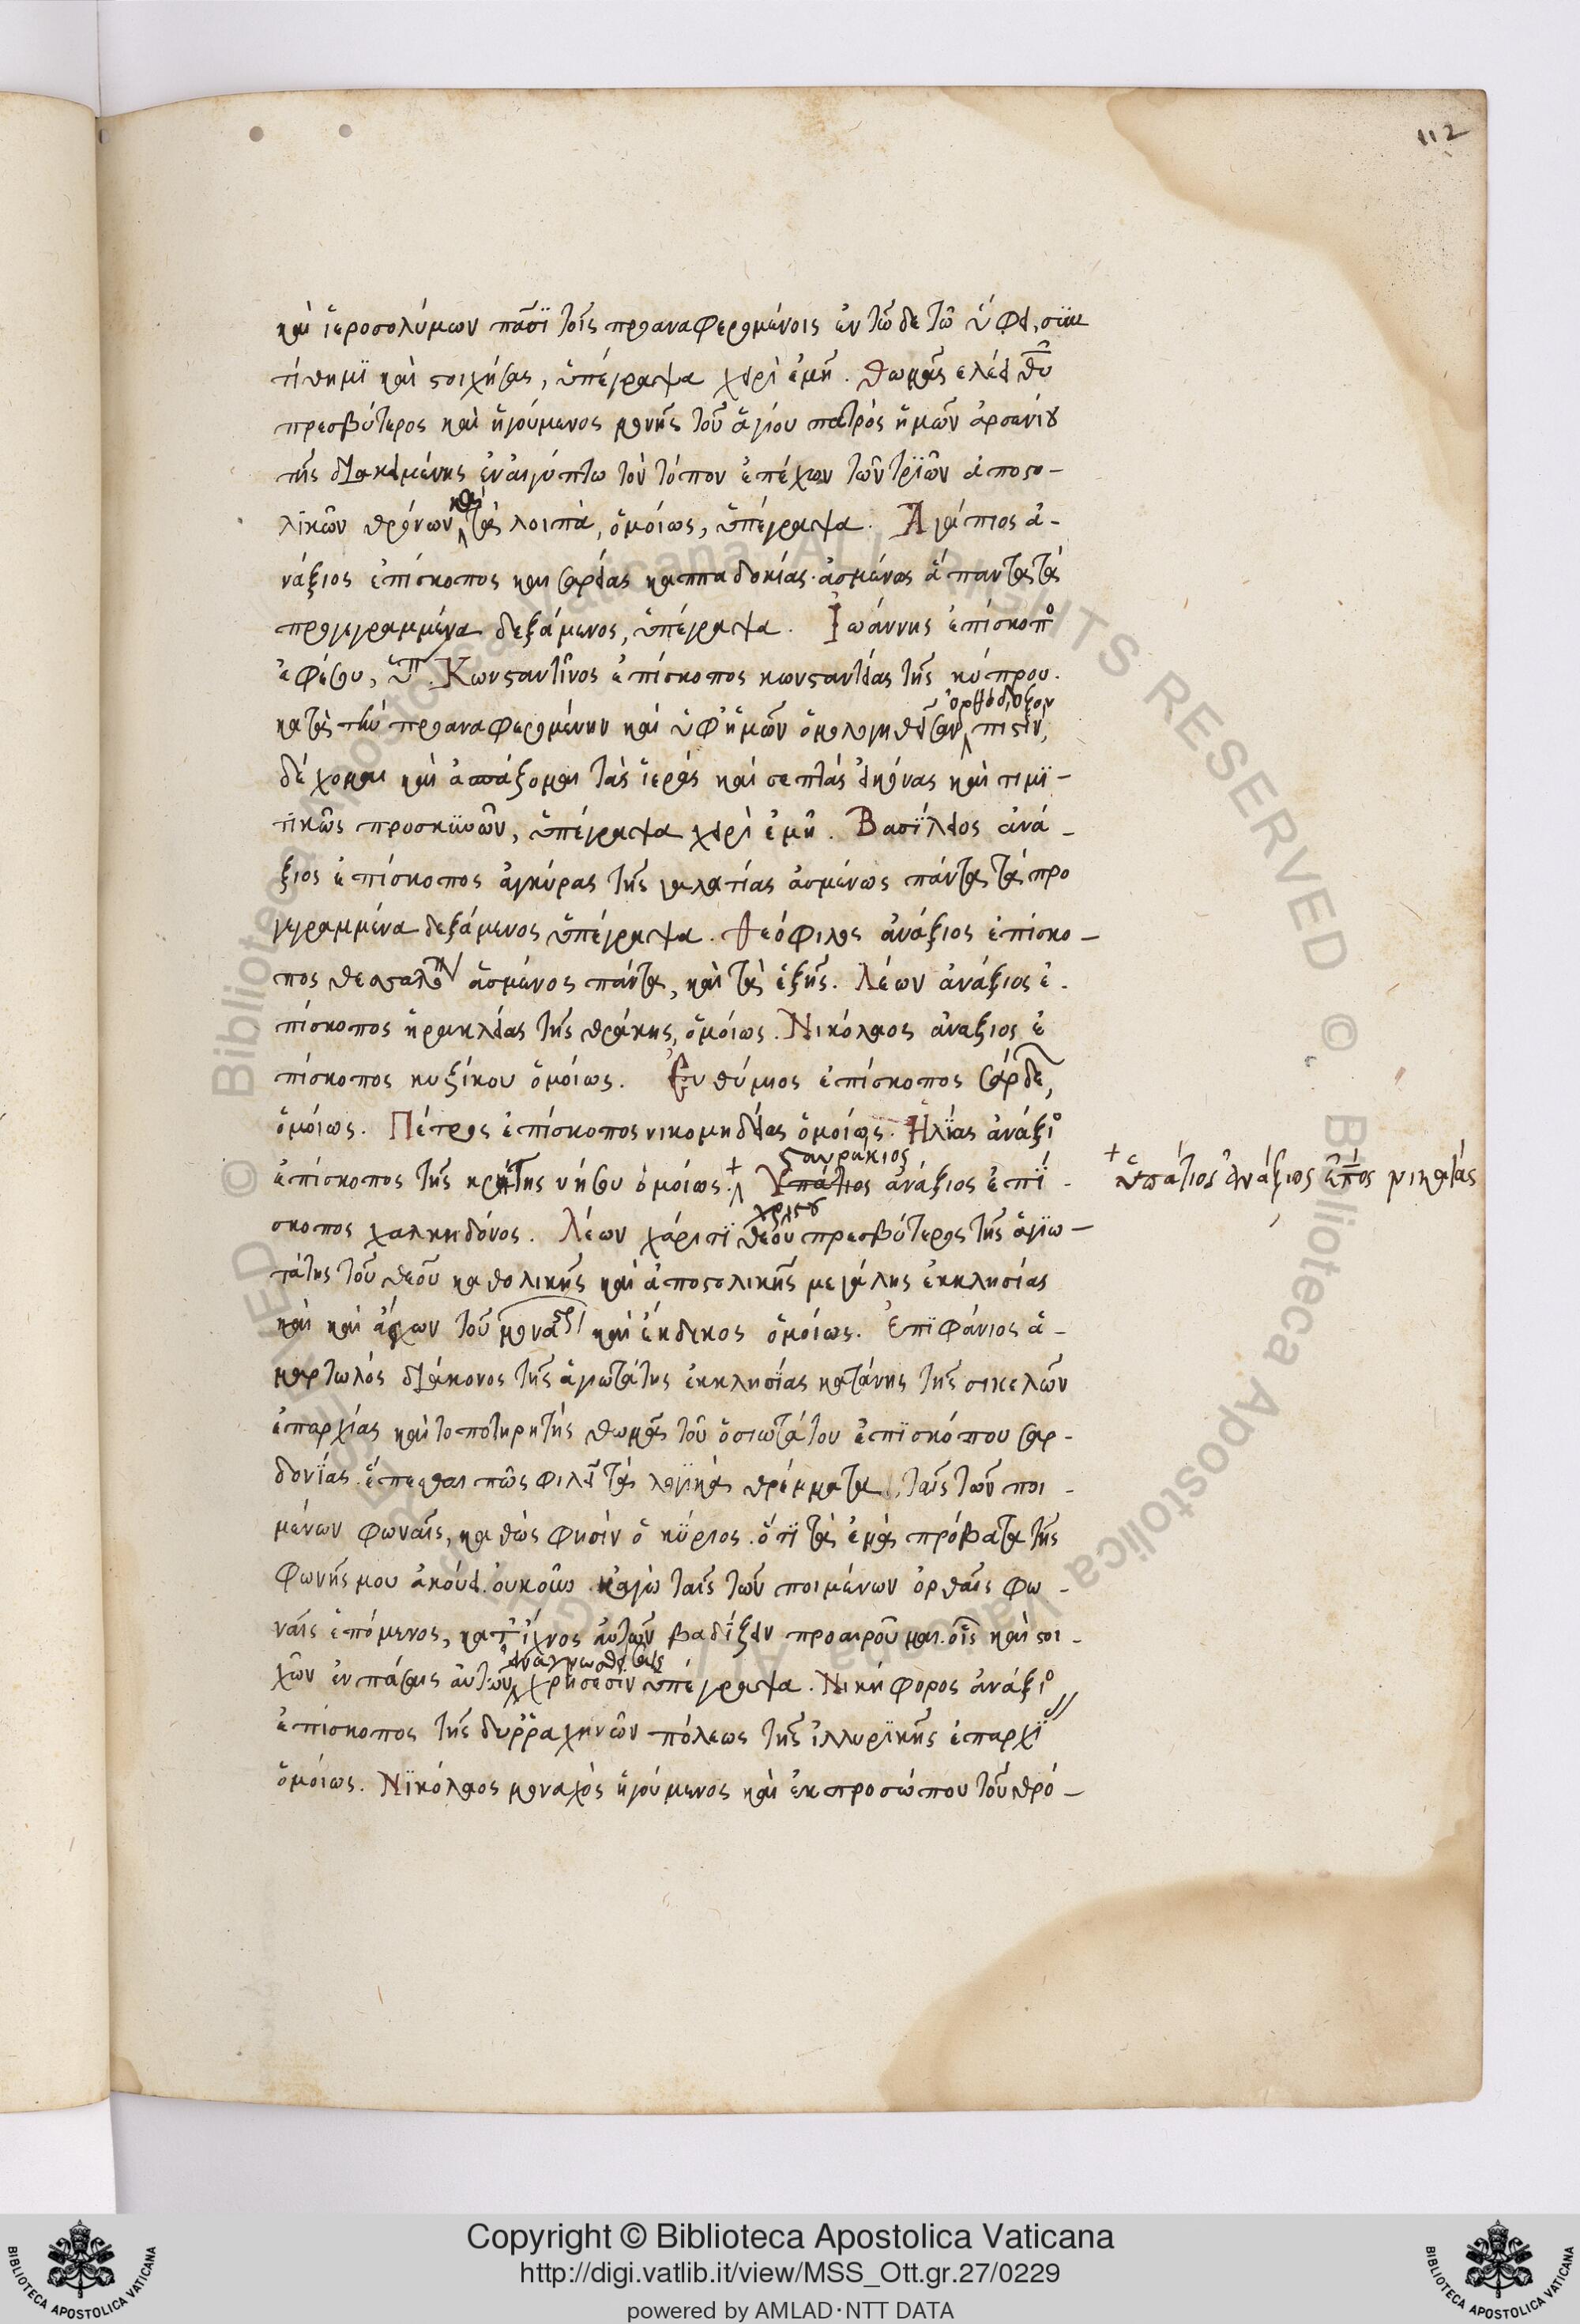 112
καὶ ἱεροσολύμων πᾶσϊ τοῖς προαναφερομένοις ἐν τῶ δε τῶ ὕφει, συν
τίθημϊ καὶ στοιχήσας, ὑπέγραψα χειρὶ ἐμῆ. Θωμᾶς ελέει θυ
πρεσβύτερος καὶ ἡγούμενος μονῆς τοῦ ἁγίου πατρὸς ἡμῶν ἀρσενίου
τῆς διακειμένης ἐν αἰγύπτω τὸν τόπον ἐπέχων τῶν τρϊῶν ἀποστο-
λϊκῶν θρόνων καὶ τὰ λοιπὰ, ὁμοίως, ὑπέγραψα. Ἀγάπιος ἀ-
νάξιος ἐπίσκοπος και σαρείας καππαδοκίας· ἀσμένως ἅπαντα τὰ
προγεγραμμένα δεξάμενος, ὑπέγραψα. Ἰωάννης ἐπίσκοπο
ἐφέσου, ὑπ. Κωνσταντῖνος ἐπίσκοπος κωνσταντείας τῆς κύπρου.
κατὰ τὴν προαναφερομένην καὶ ὑφ' ἡμῶν ὁμολογηθεῖσαν ὀρθόδοξον πίστϊν,
δέχομαι καὶ ἀσπάζομαι τὰς ἱερὰς καὶ σεπτὰς εἰκόνας καὶ τιμϊ-
τϊκῶς προσκϋνῶν, ὑπέγραψα χειρὶ ἐμῆ. Βασϊλειος ἀνά-
ξιος ἐπίσκοπος ἀγκύρας τῆς γαλατίας ἀσμένως πάντα τὰ προ
γεγραμμένα δεξάμενος ὑπέγραψα. Θεόφιλος ἀνάξιος ἐπίσκο-
πος θεσσαλον ἀσμένος πάντα, καὶ τὰ ἑξῆς. Λέων ἀνάξιος ἐ-
πίσκοπος ἡρακλείας τῆς θράκης, ὁμοίως. Νικόλαος ἀναξιος ἐ
πίσκοπος κυζίκου ὁμοίως. Εὐθύμιος ἐπίσκοπος σάρδε,
ὁμοίως. Πέτρος ἐπίσκοπος νικομηδείας ὁμοίως. Ἠλϊας ἀνάξιο
ἐπίσκοπος τῆς κρήτης νήσου ὁμοίως. + Ὑπάτιος σταυράκιος ἀνάξιος ἐπϊ-
+ ὑπάτιος ἀνάξιος ἐπος νικαίας
σκοπος χαλκηδόνος. Λέων χάριτϊ θεοῦ χρϊστου πρεσβύτερος τῆς ἁγϊω-
τάτης τοῦ θεοῦ καθολικῆς καὶ ἀποστολικῆς μεγάλης ἐκκλησίας
καὶ καὶ ἄρχων τοῦ μοναστ καὶ ἔκδικος ὁμοίως. Ἐπϊφάνιος ἁ-
μαρτωλὸς διάκονος τῆς ἁγιωτάτης ἐκκλησίας κατάνης τῆς σικελῶν
ἐπαρχίας καὶ τοποτηρητὴς θωμᾶ τοῦ ὁσιωτάτου ἐπϊσκόπου σαρ-
δονϊας. ἕπεσθαι πῶς φιλεῖ τὰ λογϊκὰ θρέμματα ταῖς τῶν ποι-
μένων φωναῖς, καθὼς φησὶν ὁ κϋριος. ὅτϊ τὰ ἐμὰ πρόβατα τῆς
φωνῆς μου ἀκούει. οὐκοῦν κἀγὼ ταῖς τῶν ποιμένων ὀρθαῖς φω-
ναῖς ἑπόμενος, κατ' ἴχνος αὐτῶν βαδίζειν προαιροῦμαι. οἷς καὶ στοι-
χῶν ἐν πάσαις αὐτῶν ἀναγνωσθείσαις χρήσεσϊν ὑπέγραψα. Νικήφορος ἀνάξιο
ἐπίσκοπος τῆς δυρραχηνῶν πόλεως τῆς ἰλλυρϊκῆς ἐπαρχϊ
ὁμοίως. Νϊκόλαος μοναχὸς ἡγούμενος καὶ ἐκ προσώπου τοῦ θρό-
© Biblioteca Apostolica Vaticana ALL RIGHTS RESERVED
BIBLIOTECA APOSTOLICA VATICANA
Copyright © Biblioteca Apostolica Vaticana
http://digi.vatlib.it/view/MSS_Ott.gr.27/0229
powered by AMLAD·NTT DATA
BIBLIOTECA APOSTOLICA VATICANA